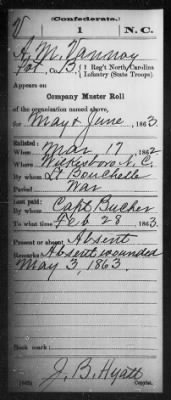 (Confederate.)
V 1 N.C.
A. M. Vannoy
Pvt, Co. B, 1 Reg't North Carolina
Infantry (State Troops).
Appears on
Company Muster Roll
of the organization named above,
for May & June, 1863.
Enlisted:
When Mar 17, 1862
Where Wilkesboro N.C.
By whom Lt Bouchelle
Period War
Last paid:
By whom Capt Bucher
To what time Feb 28, 1863.
Present or absent Absent
Remarks: Absent wounded
May 3, 1863.
Book mark:
J. B. Hyatt
Copyist.